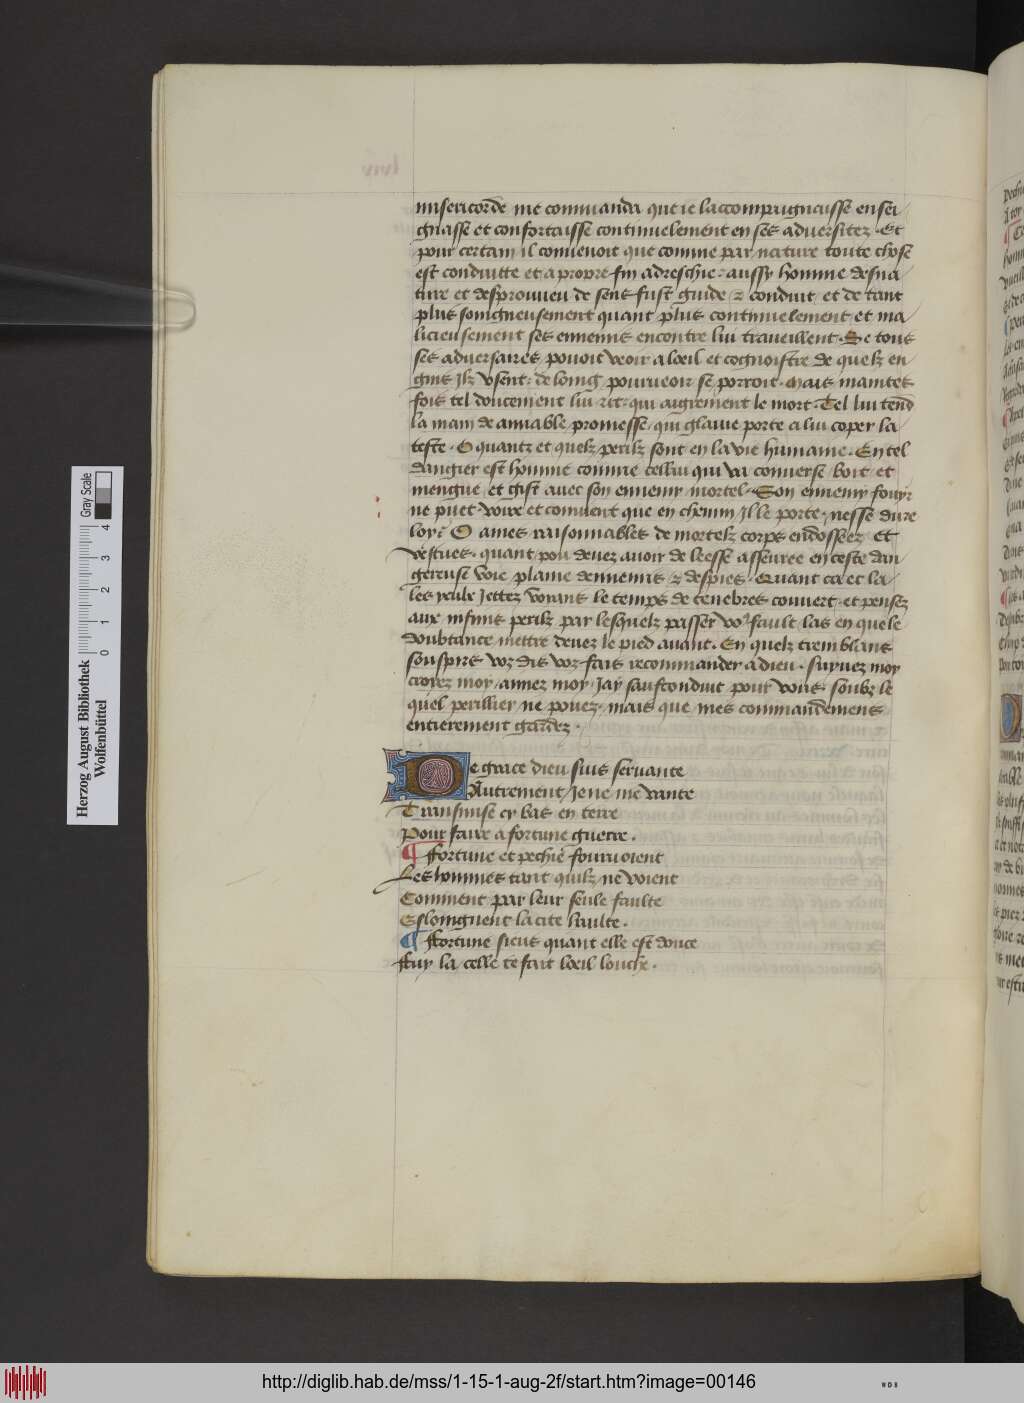 misericorde me commanda que ie laccompaignaisse ensei
gnasse et confortaisse continuelement en ses aduersitez. Et
pour certain il conuenoit que comme par nature toute chose
est conduitte et a propre fin adreschie: aussy homme desna
ture et desprouueu de sens fust guide & conduit et de tant
plus soingneusement quant plus continuelement et ma
licieusement ses ennemis encontre lui traueillent. Se tous
ses aduersaires pouoit veoir a loeil et cognoistre de quelz en
gins Ilz vsent: de loing pourueoir se porroit. Mais maintes
fois tel doucement lui rit: qui aigrement le mort. Tel lui tend
la main de amiable promesse, qui glaiue porte a lui coper la
teste. O quantz et quelz perilz sont en la vie humaine. En tel
dangier est homme comme cellui qui va conuerse boit et
mengue et gist auec son ennemy mortel. Son ennemy fouyr
ne puet voire et conuient que en chemin Il le porte, nesse dure
loy? O ames raisonnables de mortelz corps endosseez et
vestues. quant pou deuez auoir de leesse asseuree en ceste dan
gereuse voie plaine dennemis & despies. Quant ca et la
les yeulx Jettez voians le temps de tenebres couuert. et pensez
aux infinis perilz par lesquelz passer vous fault, las en quele
doubtance mettre deuez le pied auant. En quelz tremblans
souspirs voz dis voz fais recommander a dieu. Suyuez moy
croyez moy. amez moy. Jay saufconduit pour vous. soubz le
quel perillier ne pouez. mais que mes commandemens
entierement gardez.
De grace dieu suis seruante
Autrement Je ne me vante
Transmise cy bas en terre
Pour faire a fortune guerre.
¶ ffortune et pechie fouruoient
Les hommes tant quilz ne voient
Comment par leur seule faulte
Eslonguent la cite haulte.
¶ ffortune sieus quant elle est douce
ffuy la celle te fait loeil louche.
Herzog August Bibliothek
Wolfenbüttel
0 1 2 3 4
Gray Scale
http://diglib.hab.de/mss/1-15-1-aug-2f/start.htm?image=00146